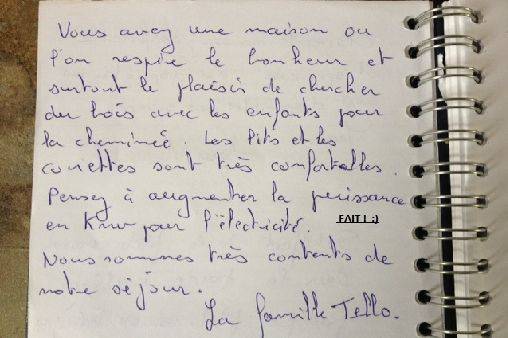 Vous avez une maison ou
l'on respire le bonheur et
surtout le plaisir de chercher
du bois avec les enfants pour
la cheminée. Les lits et les
couettes sont très confortables.
Pensez à augmenter la puissance
en Kmw pour l'électricité. FAIT ! :)
Nous sommes très contents de
notre séjour.
La famille Tello.